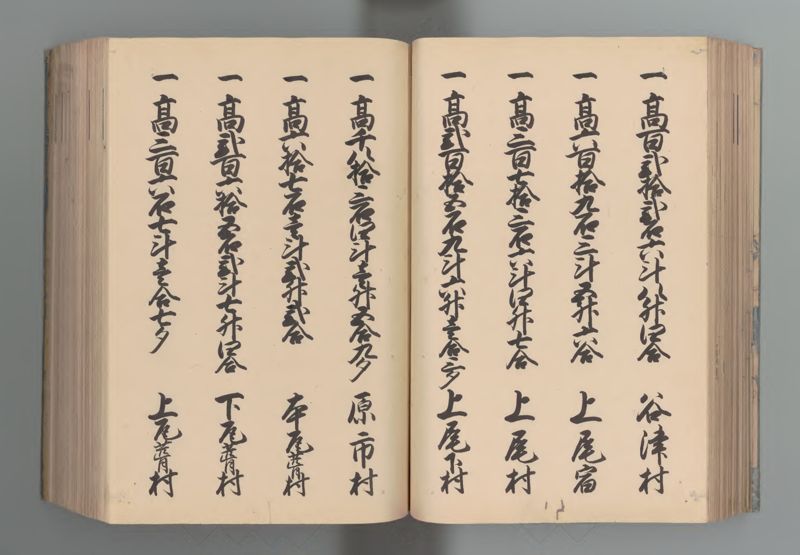 一 高百弐拾弐石六斗八升四合 谷津村
一 高六百拾九石三斗五升六合 上尾宿
一 高三百七拾三石六斗四升七合 上尾村
一 高弐百拾五石九斗六升壱合三夕 上尾下村
一 高千八拾三石四斗壱升五合九夕 原市村
一 高六拾七石壱斗弐升弐合 本尾村
一 高弐百六拾五石弐斗七升四合 下尾村
一 高三百六石七斗壱合七夕 上尾村